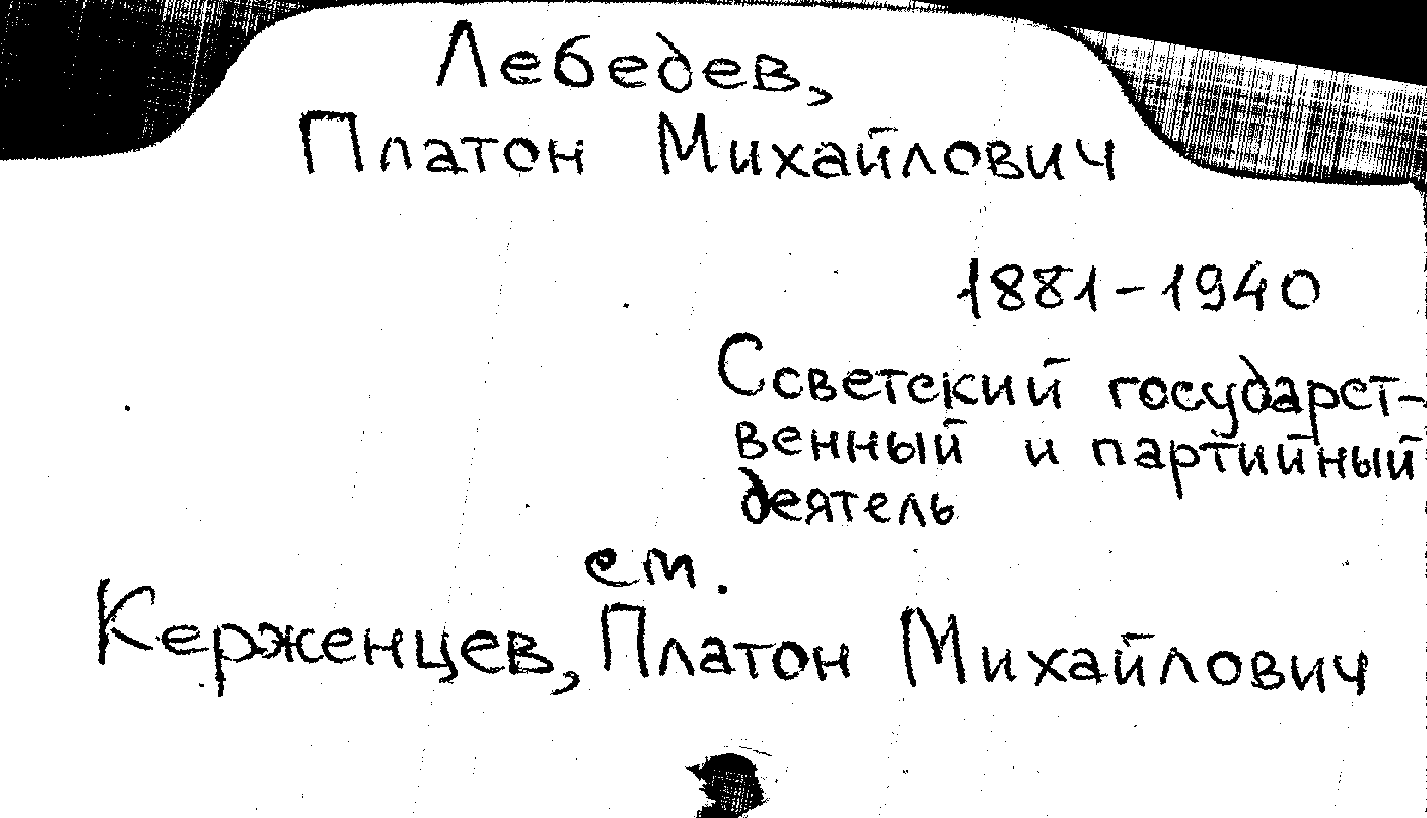 Лебедев,
Платон Михайлович
1881-1940
Советский государст-
венный и партийный
деятель
см.
Керженцев, Платон Михайлович